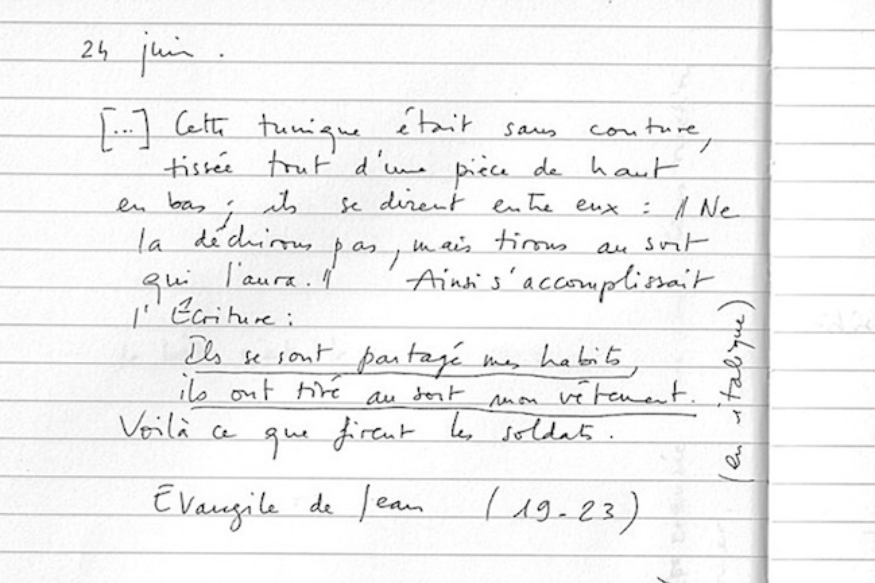 24 juin.
[...] Cette tunique était sans couture,
tissée tout d'une pièce de haut
en bas ; ils se dirent entre eux : "Ne
la déchirons pas, mais tirons au sort
qui l'aura." Ainsi s'accomplissait
l'Écriture :
Ils se sont partagé mes habits,
ils ont tiré au sort mon vêtement.
Voilà ce que firent les soldats.
(en italique)
Evangile de Jean (19-23)